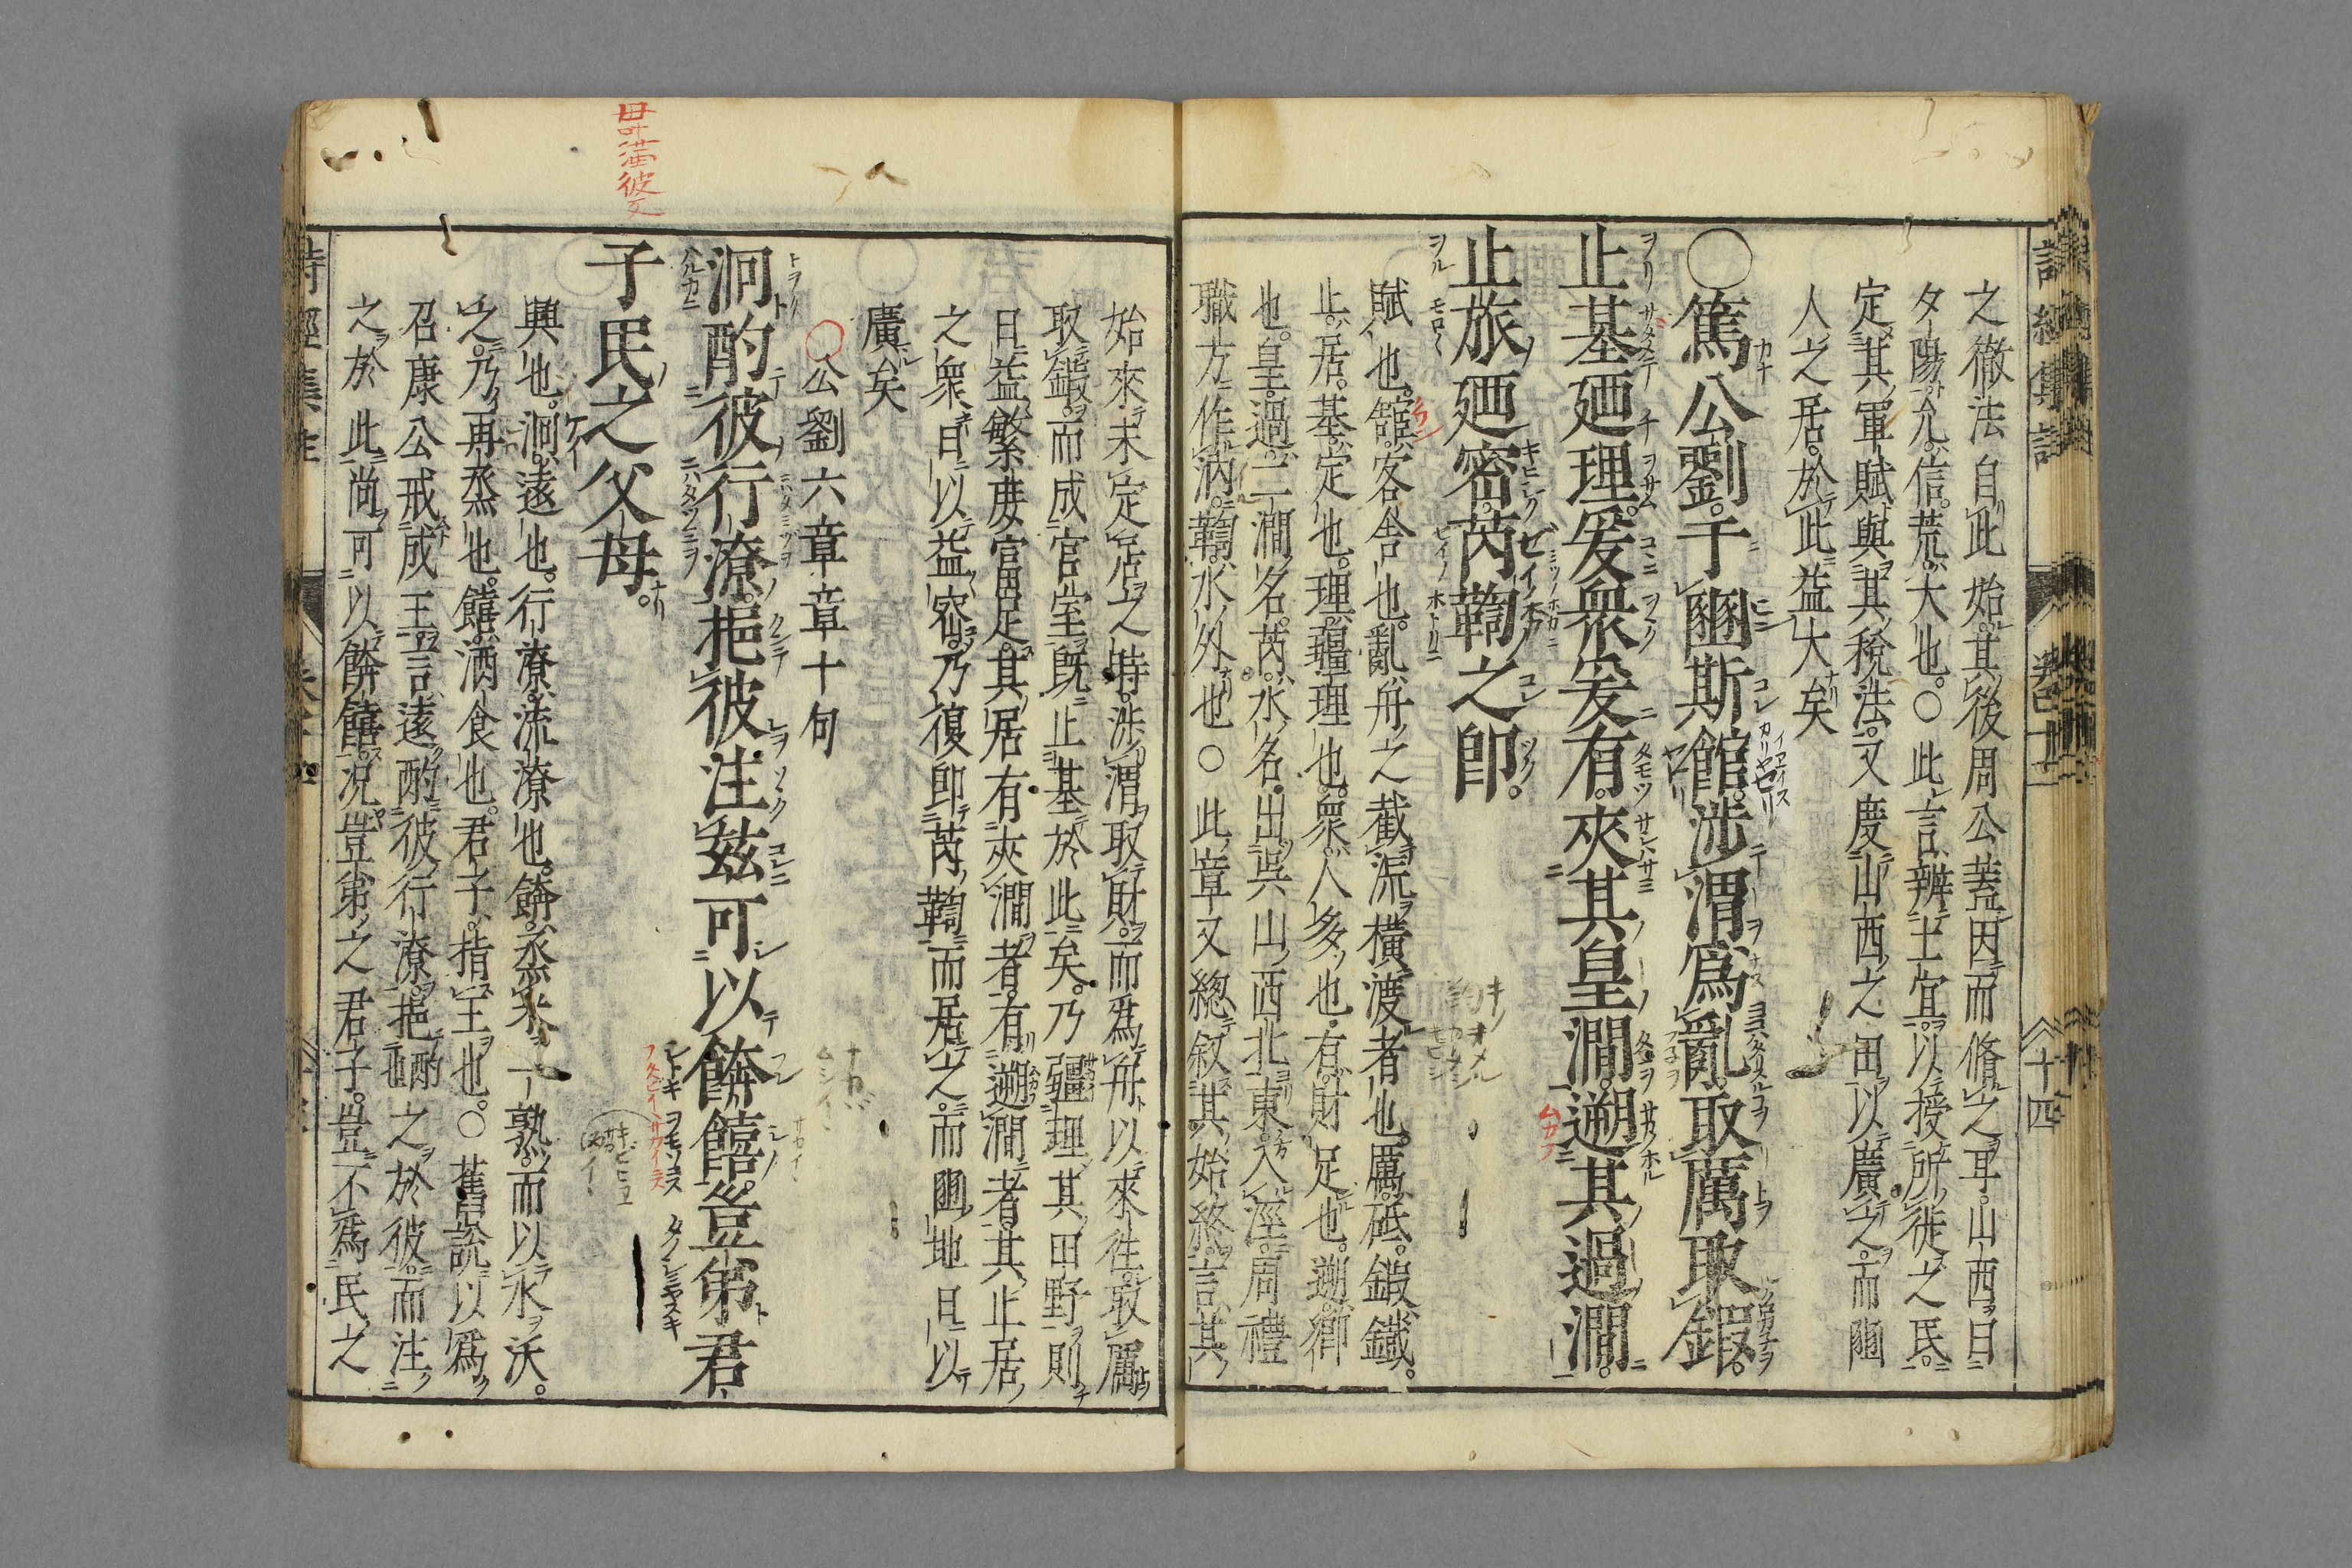 之徹法自此始其後周公蓋因而脩之耳。山西曰
夕陽允信荒大也。○此言辨土宜以授所徙之民。
定其軍賦與其稅法又度山西之田以廣之而豳
人之居於此益大矣
○篤公劉。于豳斯館涉渭爲亂。取厲取鍛。
止基廼理。爰衆爰有。夾其皇澗遡其過澗。
止旅廼密。芮鞫之卽。
賦也。館客舍也。亂舟之截流橫渡者也。厲砥。鍛鐵。
止居。基定也。理疆理也。衆人多也。有財足也。遡鄉
也。皇。過。二澗名。芮水名。出吳山西北東入涇周禮
職方作汭。鞫水外也○此章又總叙其始終。言其
始來未定居之時。涉渭取財而爲舟以來往。取厲
取鍛而成宮室既止基於此矣。乃疆理其田野則
日益繁庶富足其居有夾澗者。有遡澗者其止居
之衆日以益密。乃復卽芮鞫而居之而豳地日以
廣矣
○公劉六章章十句
泂酌彼行潦。挹彼注茲可以餴饎。豈弟君
子民之父母。
興也。泂遠也。行潦流潦也。餴烝米一熟而以水沃。
之。乃再烝也。饎酒食也。君子指王也。○舊說以爲
召康公戒成王言遠酌彼行潦挹酌之於彼而注
之於此尚可以餴饎。況豈弟之君子。豈不爲民之
詩經集註
十四